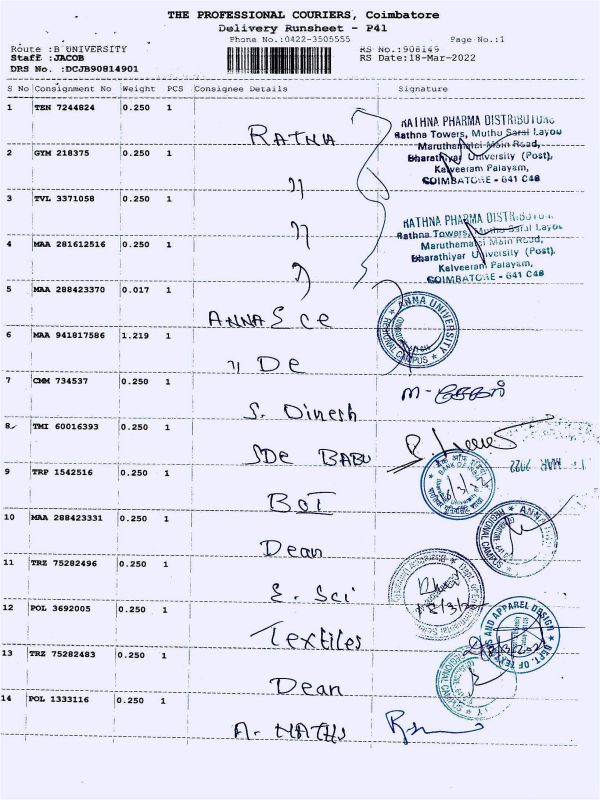 THE PROFESSIONAL COURIERS, Coimbatore
Delivery Runsheet - P41
Phone No.:0422-3505555 Page No.:1
Route :B UNIVERSITY RS No.:908149
Staff :JACOB RS Date:18-Mar-2022
DRS No. :DCJB90814901
S No Consignment No Weight PCS Consignee Details Signature
1 TEN 7244824 0.250 1
RATNA
RATHNA PHARMA DISTRIBUTORS
Rathna Towers, Muthu Saral Layou
Maruthamalai Main Road,
Bharathiyar University (Post),
Kalveeram Palayam,
COIMBATORE - 641 046
2 GYM 218375 0.250 1
"
3 TVL 3371058 0.250 1
"
RATHNA PHARMA DISTRIBUTORS
Rathna Towers, Muthu Saral Layou
Maruthemalai Main Road,
Bharathiyar University (Post),
Kalveeram Palayam,
COIMBATORE - 641 046
4 MAA 281612516 0.250 1
"
5 MAA 288423370 0.017 1
ANNA S ce
ANNA UNIVERSITY
REGIONAL CAMPUS
6 MAA 941817586 1.219 1
" De
7 CMM 734537 0.250 1
S. Dinesh
8 TMI 60016393 0.250 1
SDe BABU
MAR 2022
9 TRP 1542516 0.250 1
BOI
BANK OF INDIA
10 MAA 288423331 0.250 1
Dean
ANNA
REGIONAL CAMPUS
11 TRZ 75282496 0.250 1
E. Sci
12 POL 3692005 0.250 1
Textiles
DEPT. OF TEXTILES AND APPAREL DESIGN
13 TRZ 75282483 0.250 1
Dean
14 POL 1333116 0.250 1
A. MATHS